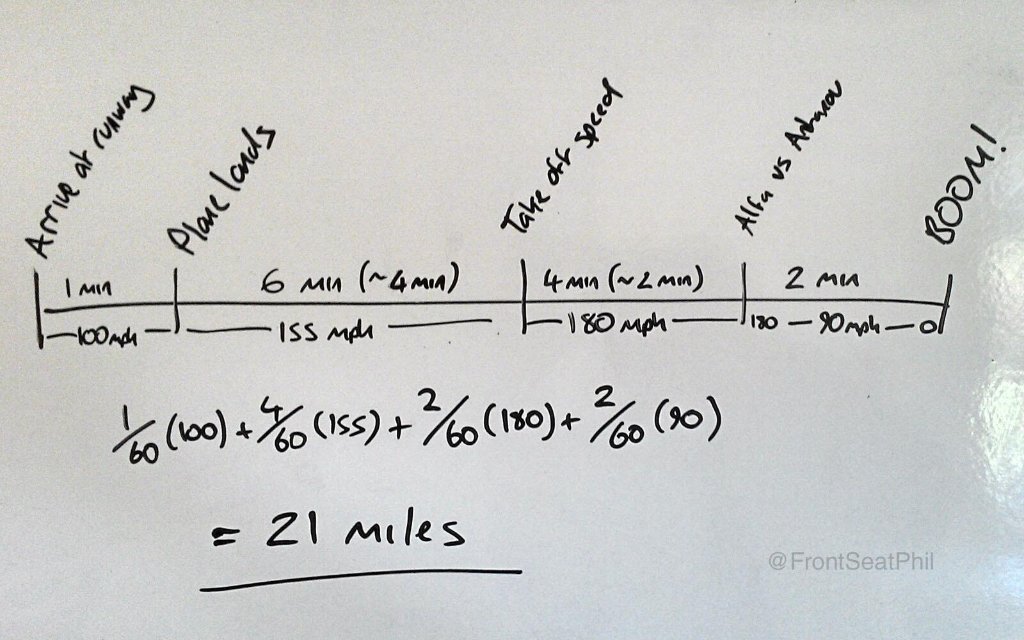 Arrive at runway
Plane lands
Take off speed
Alfa vs Antonov
BOOM!
1 min
6 min (~4min)
4 min (~2 min)
2 min
100mph
155 mph
180 mph
180 - 90mph - 0
1/60 (100) + 4/60 (155) + 2/60 (180) + 2/60 (90)
= 21 miles
@FrontSeatPhil